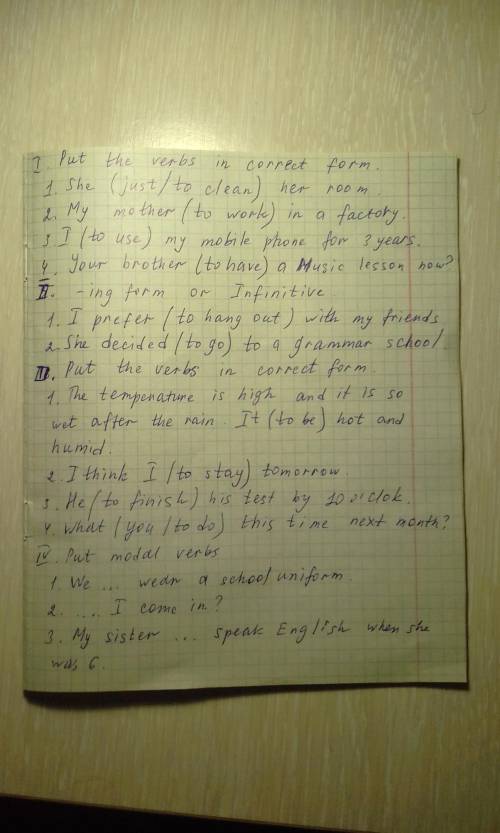 I. Put the verbs in correct form.
1. She (just/to clean) her room.
2. My mother (to work) in a factory.
3 I (to use) my mobile phone for 3 years.
4. Your brother (to have) a Music lesson now?
II. -ing form or Infinitive
1. I prefer (to hang out) with my friends
2. She decided (to go) to a grammar school.
III. Put the verbs in correct form.
1. The temperature is high and it is so
wet after the rain. It (to be) hot and
humid.
2. I think I (to stay) tomorrow.
3. He (to finish) his test by 10 o'clok.
4. What (you/to do) this time next month?
IV. Put modal verbs
1. We ... wear a school uniform.
2. .... I come in?
3. My sister ... speak English when she
was 6.